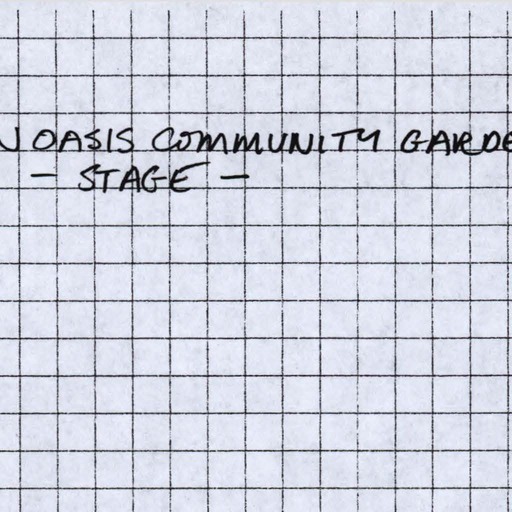 N OASIS COMMUNITY GARDE
- STAGE -